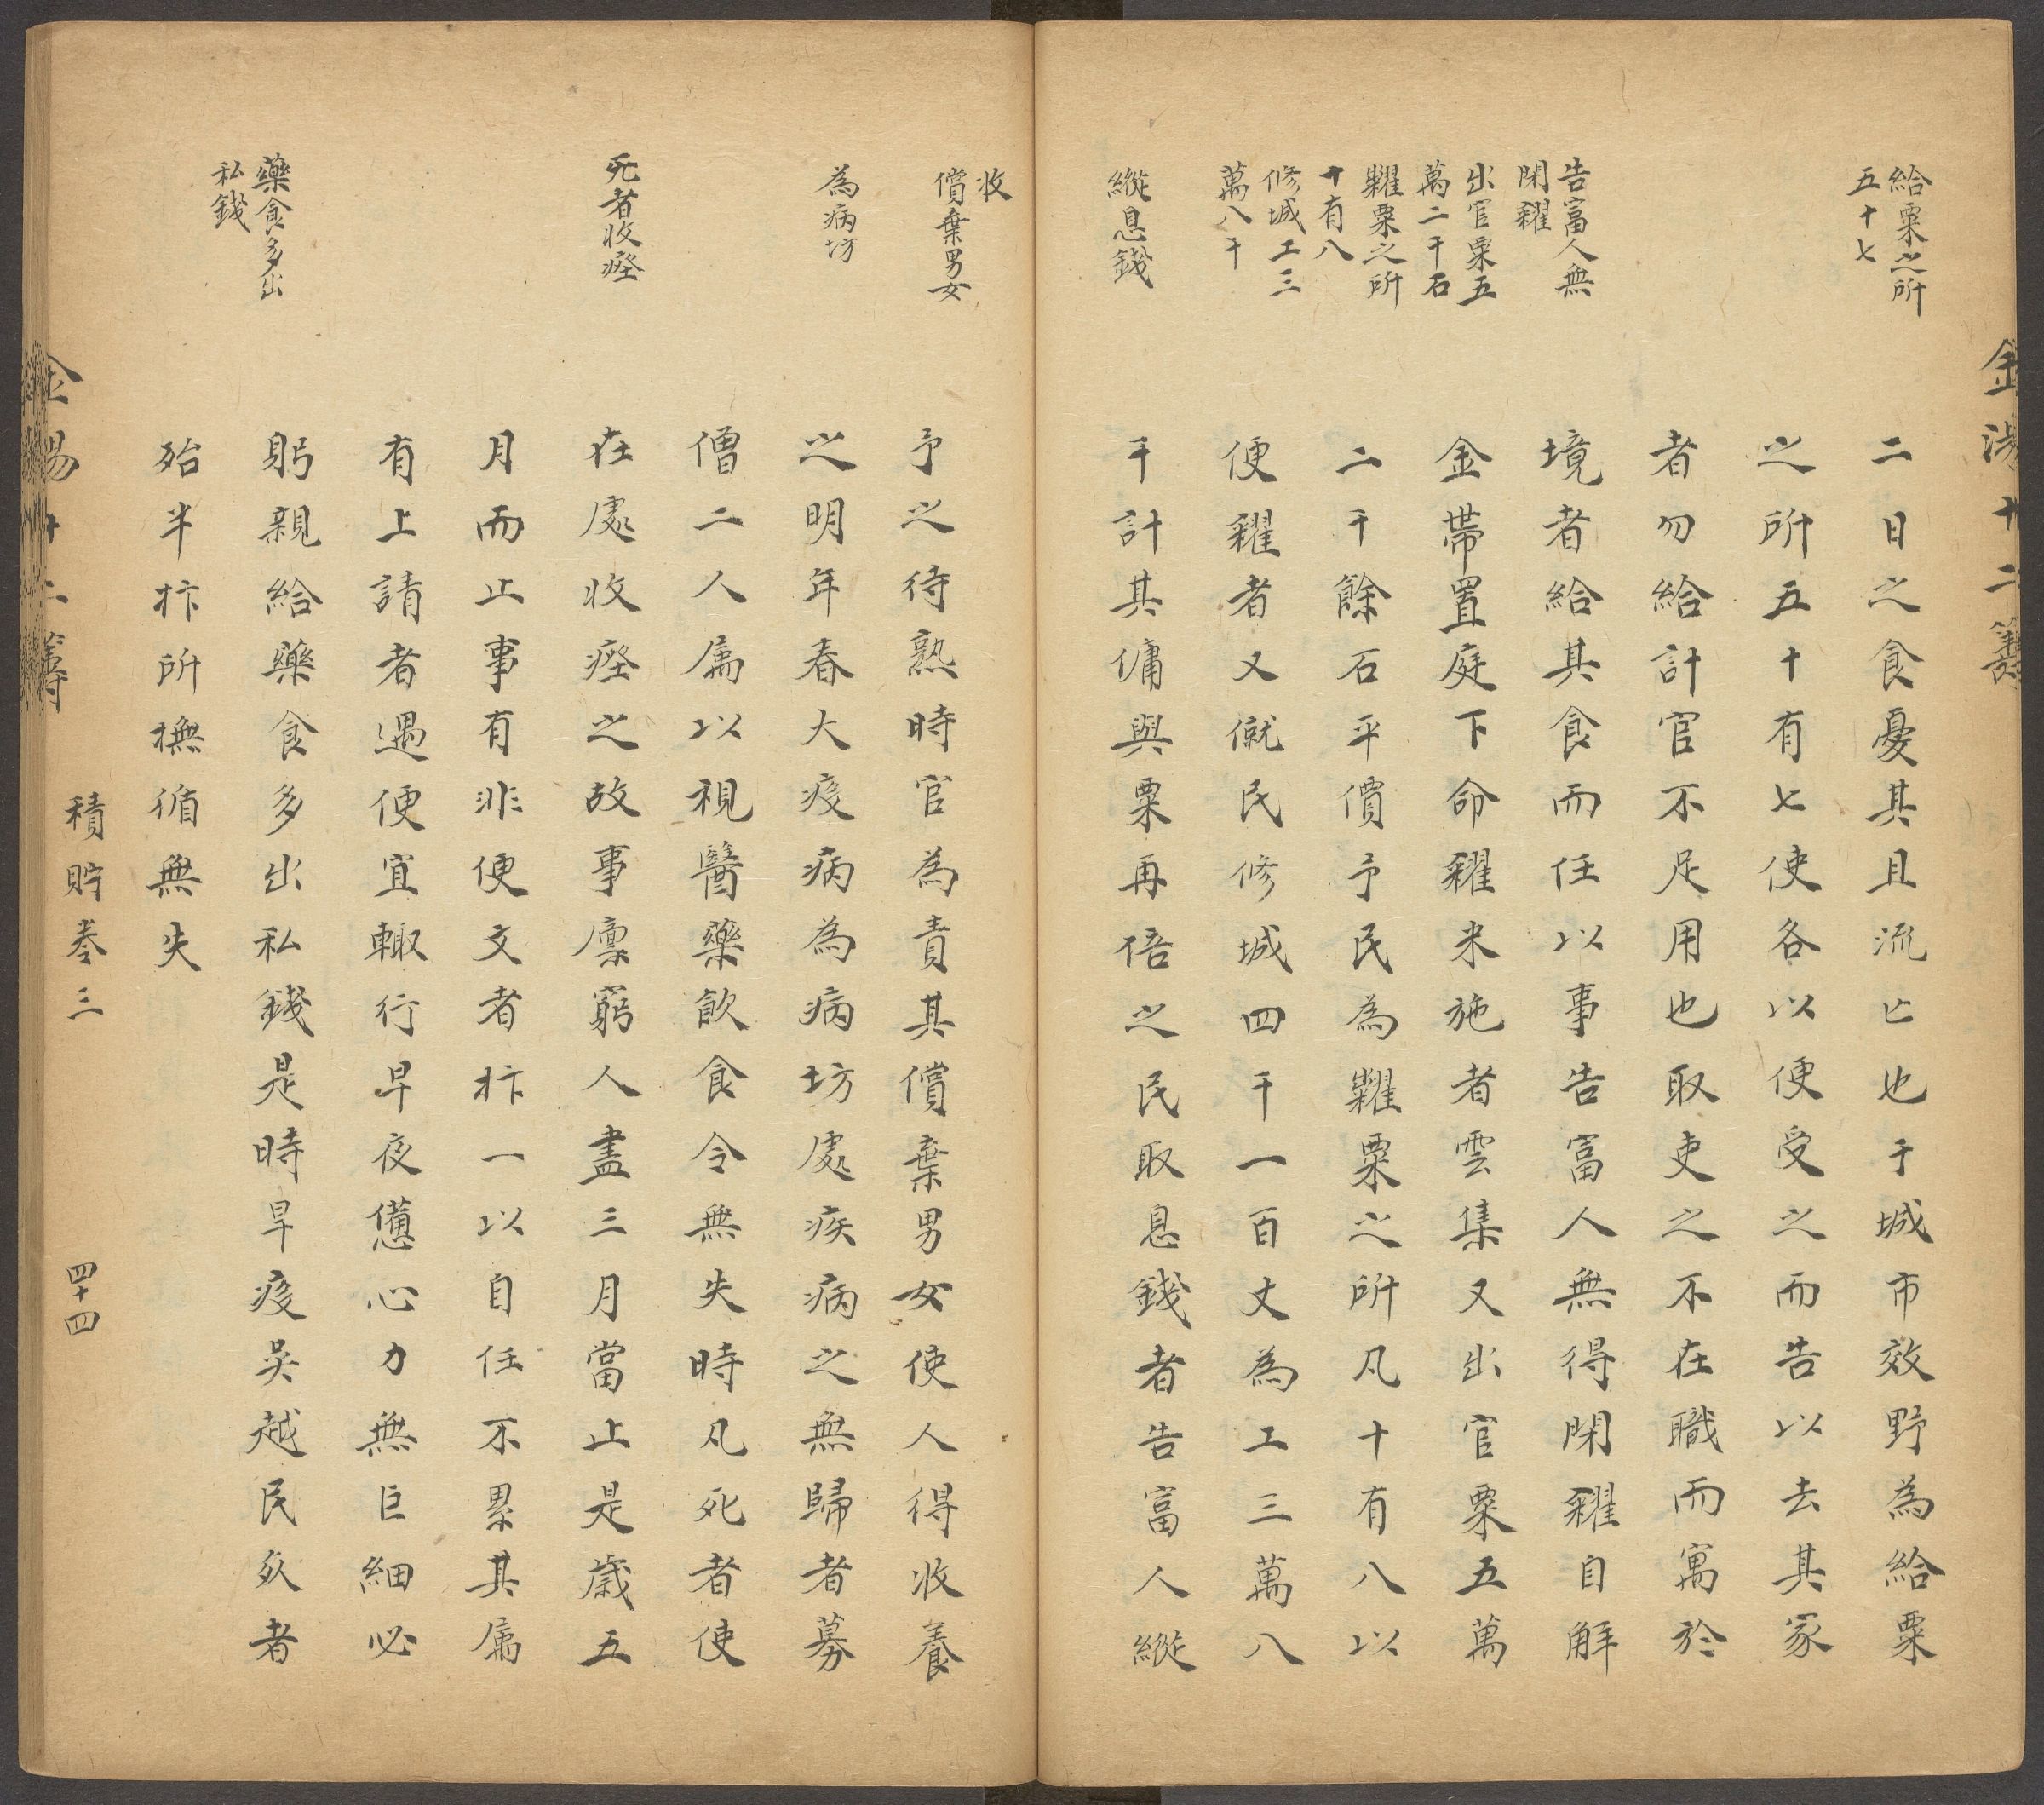 金湯十二籌
給粟之所
五十七
告富人無
閉糴
出官粟五
萬二千石
糶粟之所
十有八
修城工三
萬八千
縱息錢
二日之食憂其且流亡也于城市效野為給粟
之所五十有七使各以便受之而告以去其家
者勿給計官不足用也取吏之不在職而寓於
境者給其食而任以事告富人無得閉糴自解
金帶置庭下命糴米施者雲集又出官粟五萬
二千餘石平價予民為糶粟之所凡十有八以
便糴者又僦民修城四千一百丈為工三萬八
千計其傭與粟再倍之民取息錢者告富人縱
收
償棄男女
為病坊
死者收瘞
藥食多出
私錢
予之待熟時官為責其償棄男女使人得收養
之明年春大疫病為病坊處疾病之無歸者募
僧二人屬以視醫藥飲食令無失時凡死者使
在處收瘞之故事廩窮人盡三月當止是歲五
月而止事有非便文者抃一以自任不累其屬
有上請者遇便宜輒行早夜憊心力無巨細必
躬親給藥食多出私錢是時旱疫吳越民死者
殆半抃所撫循無失
金湯十二籌
積貯卷三
四十四